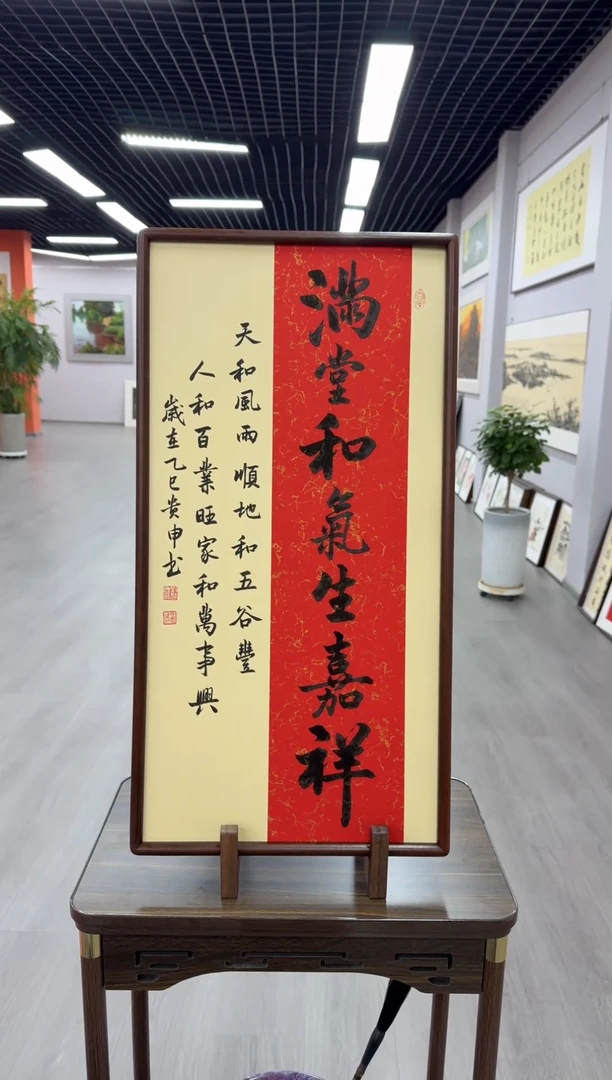 滿堂和氣生嘉祥
天和風雨順地和五谷豐
人和百業旺家和萬事興
歲在乙巳贵申书